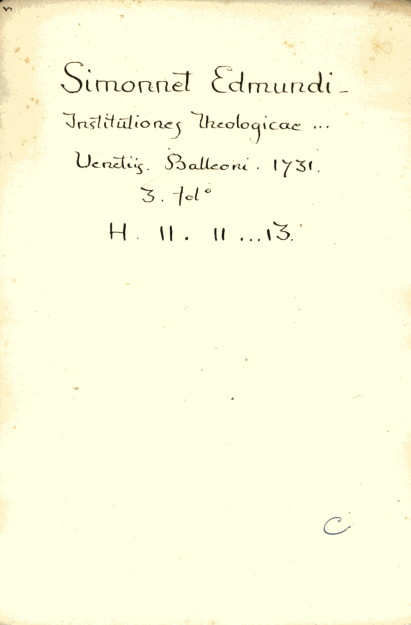 Simonnet Edmundi -
Institutiones theologicae ...
Venetiis. Balleoni. 1731.
3. fol°
H. II. II ... 13.
C